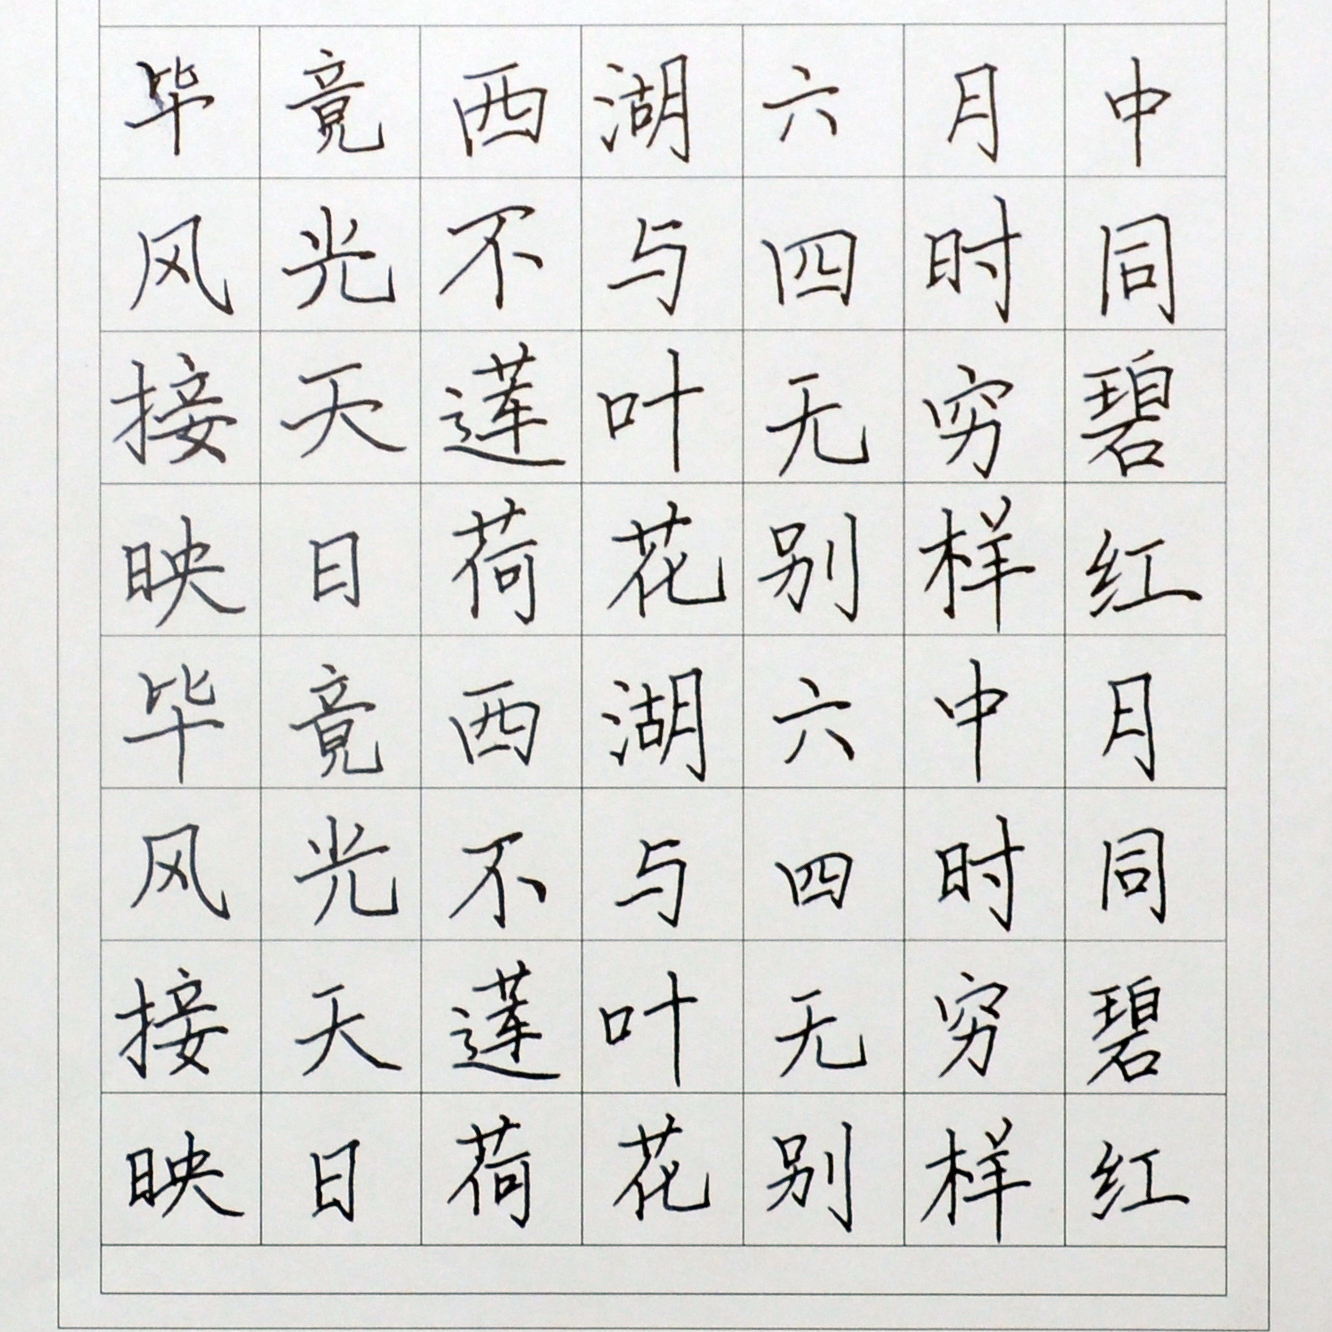 毕竟西湖六月中
风光不与四时同
接天莲叶无穷碧
映日荷花别样红
毕竟西湖六中月
风光不与四时同
接天莲叶无穷碧
映日荷花别样红